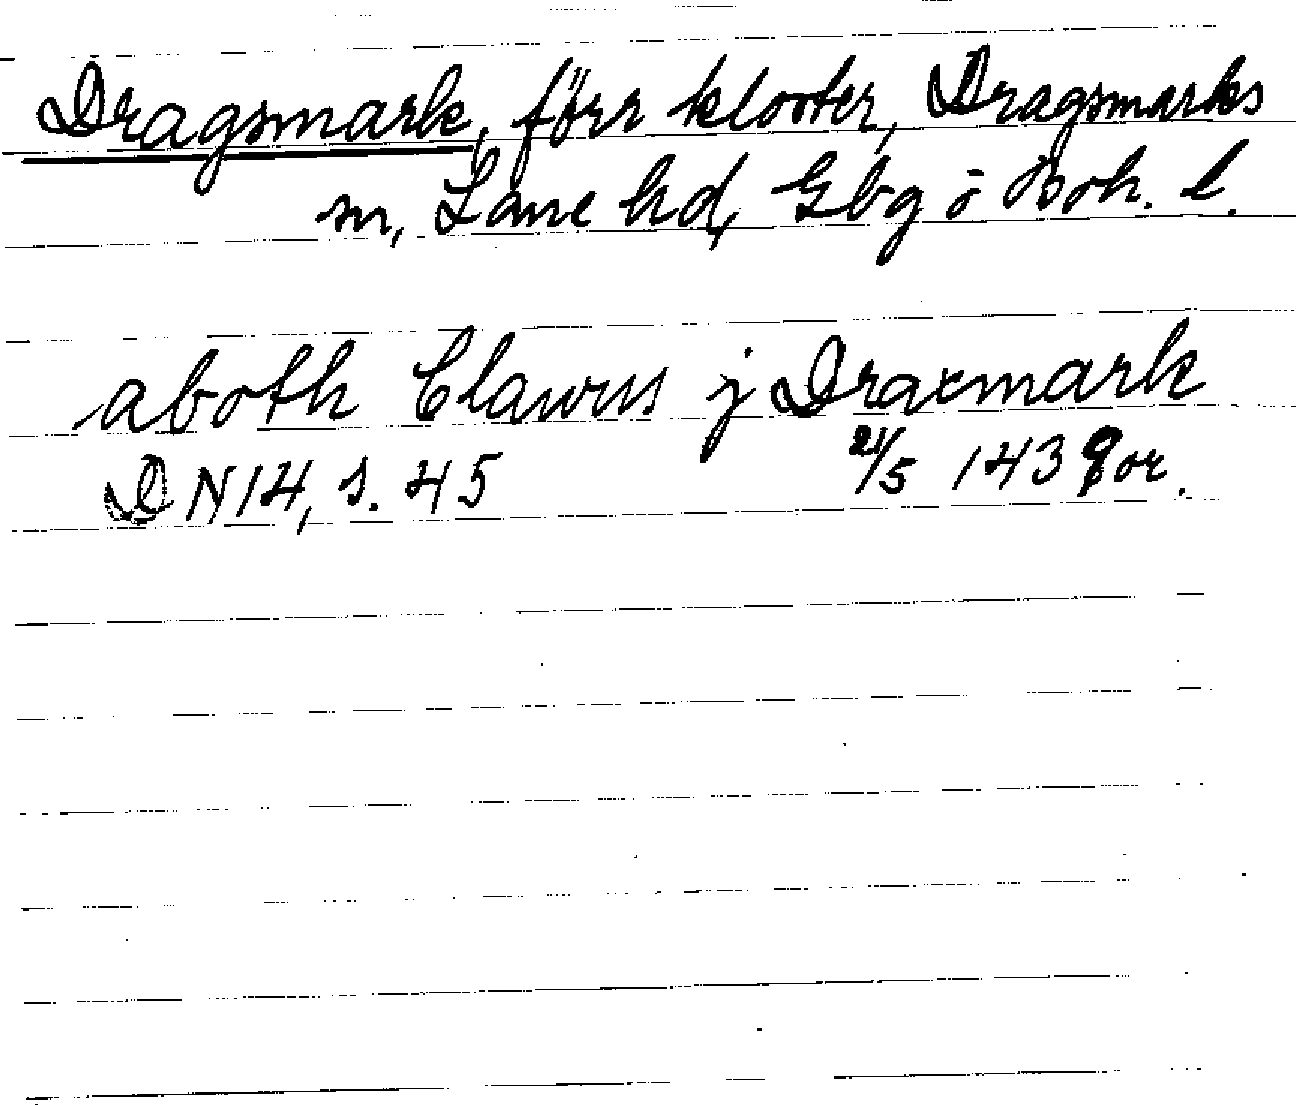 Dragsmark, förr kloster, Dragsmarks
sn, Lane hd, Gbg o Boh. l.
aboth Clawus j Draxmark
DN 14, s. 45 21/5 1439 or.